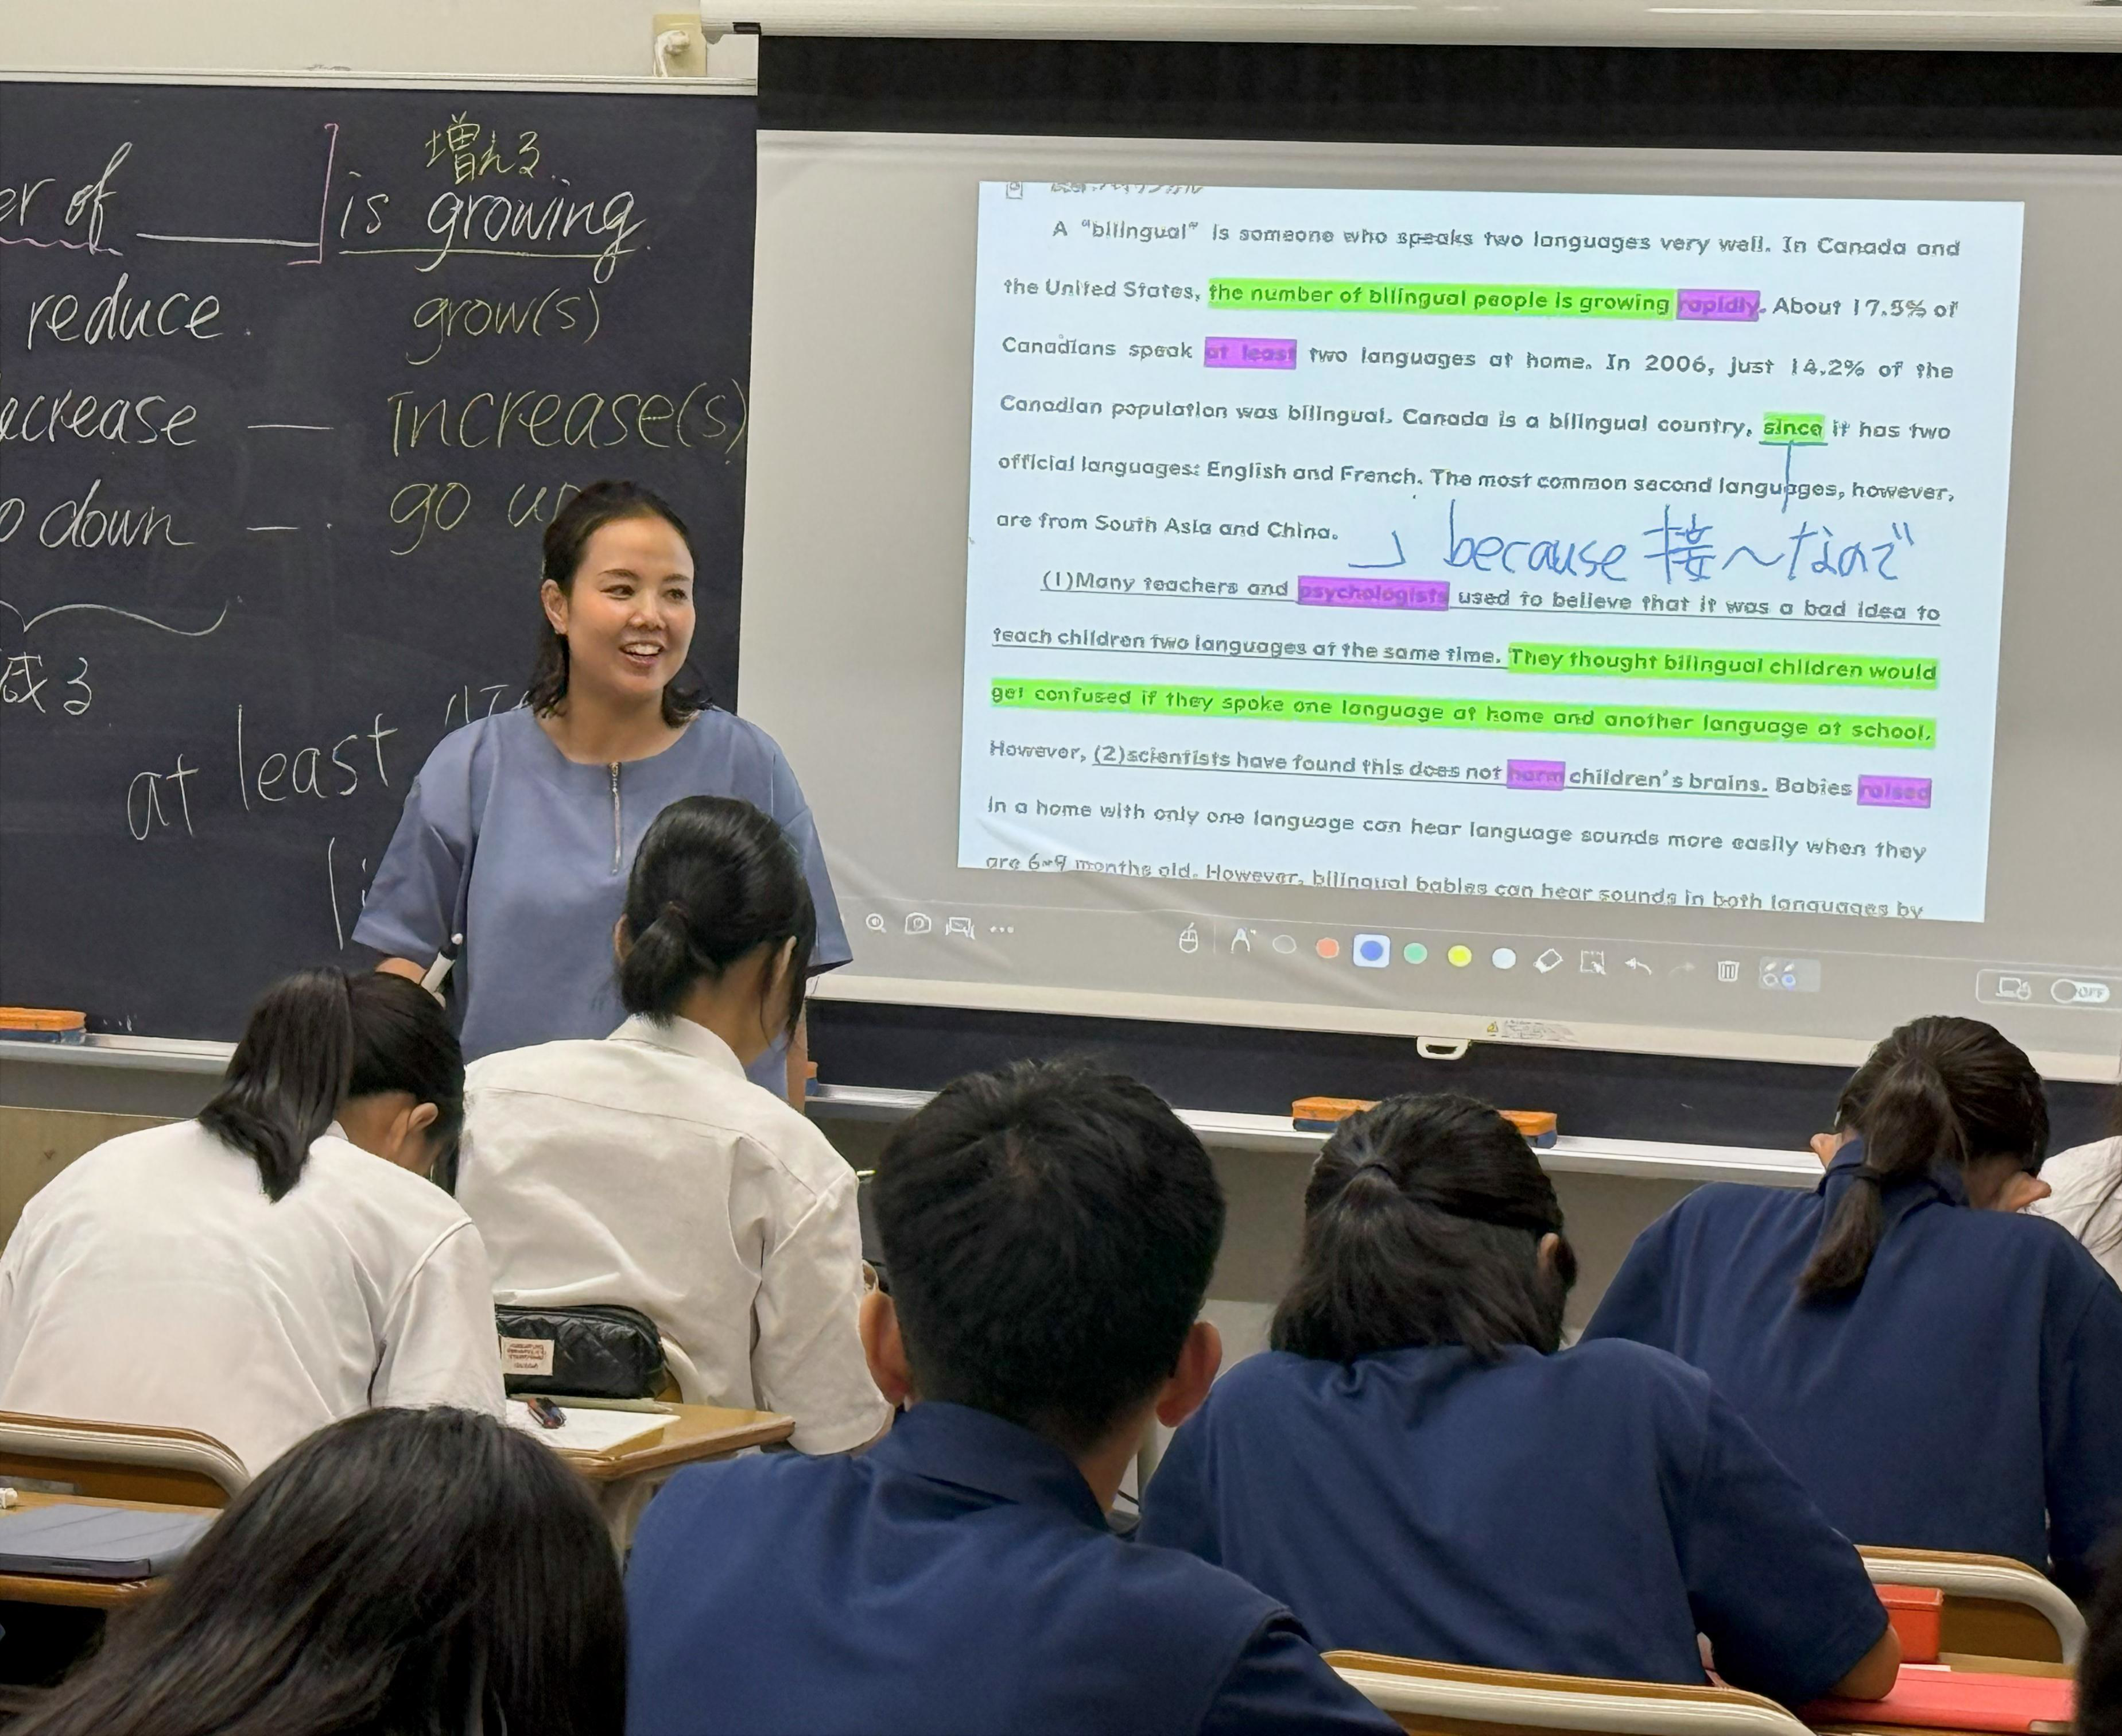 er of ____ ] is growing
増える
reduce grow(s)
ecrease — increase(s)
o down — go up
減る
at least
A “bilingual” is someone who speaks two languages very well. In Canada and
the United States, the number of bilingual people is growing rapidly. About 17.5% of
Canadians speak at least two languages at home. In 2006, just 14.2% of the
Canadian population was bilingual. Canada is a bilingual country, since it has two
official languages: English and French. The most common second languages, however,
are from South Asia and China.
because 接〜なので
(1)Many teachers and psychologists used to believe that it was a bad idea to
teach children two languages at the same time. They thought bilingual children would
get confused if they spoke one language at home and another language at school.
However, (2)scientists have found this does not harm children's brains. Babies raised
in a home with only one language can hear language sounds more easily when they
are 6-9 months old. However, bilingual babies can hear sounds in both languages by
OFF